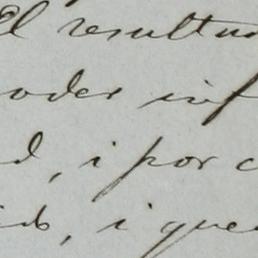 El resultad
oder inf
d, i por c
id, i que